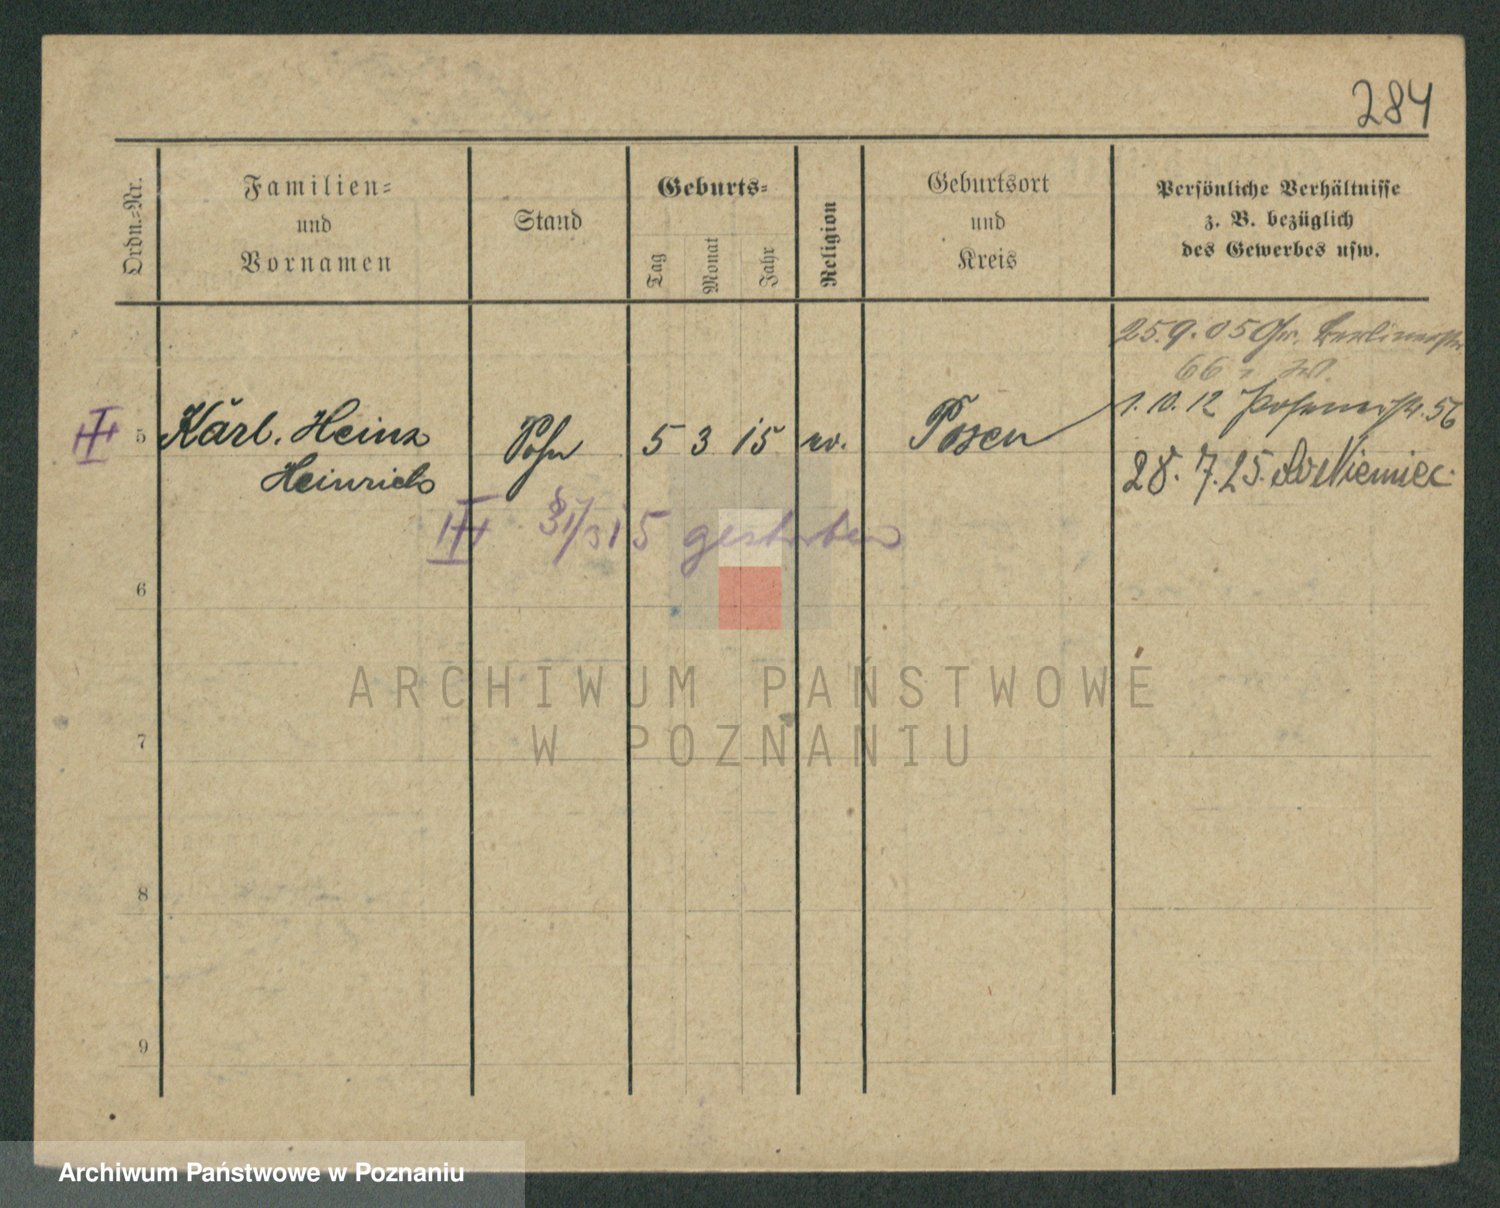 284
Ordn.=Nr.
Familien=
und
Vornamen
Stand
Geburts=
Tag
Monat
Jahr
Religion
Geburtsort
und
Kreis
Persönliche Verhältnisse
z. B. bezüglich
des Gewerbes usw.
25.9.05 Gr. Berlinerstr
66
1.10.12 Posenerstr. 56
5 Karl. Heinz Sohn 5 3 15 ev. Posen
Heinrich
28. 7. 25. Niemiec
III 31/3 15 gestorben
6
7
8
9
ARCHIWUM PAŃSTWOWE
W POZNANIU
Archiwum Państwowe w Poznaniu